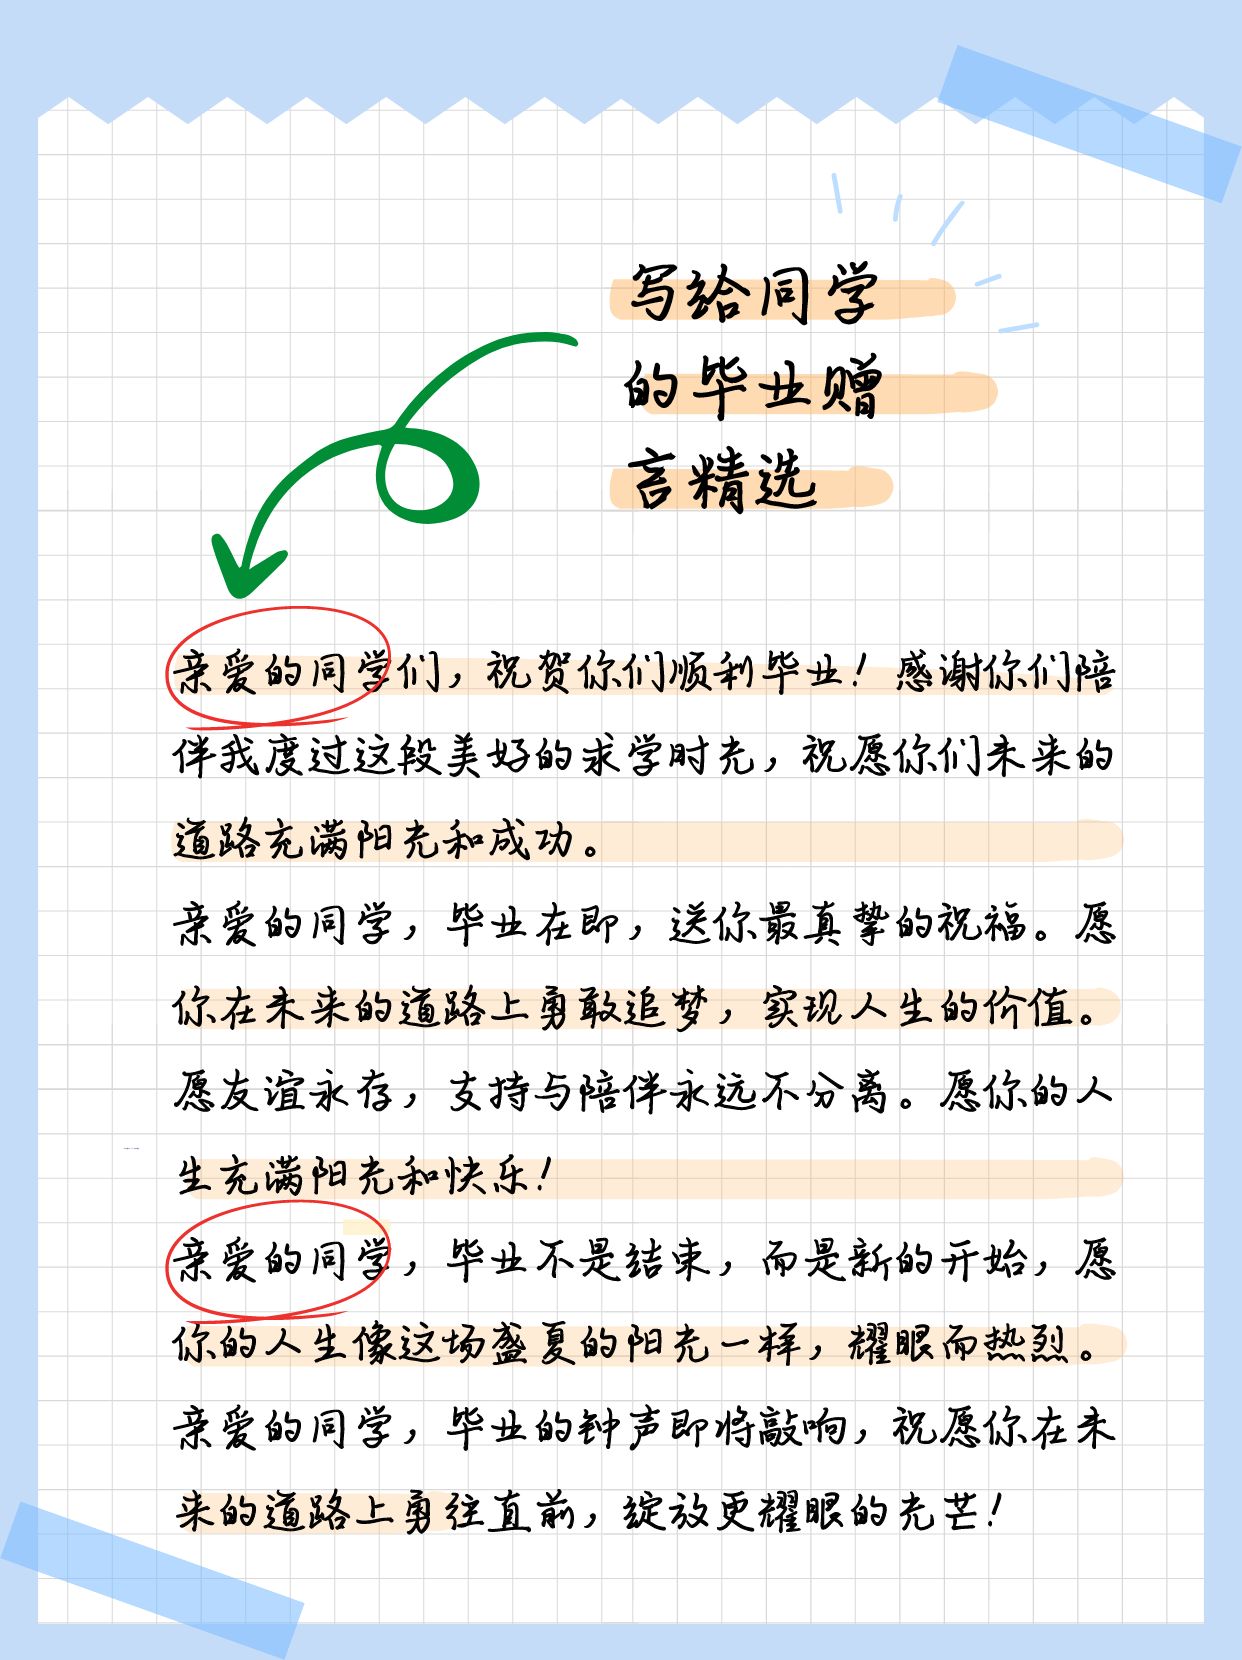 写给同学
的毕业赠
言精选
亲爱的同学们，祝贺你们顺利毕业！感谢你们陪
伴我度过这段美好的求学时光，祝愿你们未来的
道路充满阳光和成功。
亲爱的同学，毕业在即，送你最真挚的祝福。愿
你在未来的道路上勇敢追梦，实现人生的价值。
愿友谊永存，支持与陪伴永远不分离。愿你的人
生充满阳光和快乐！
亲爱的同学，毕业不是结束，而是新的开始，愿
你的人生像这场盛夏的阳光一样，耀眼而热烈。
亲爱的同学，毕业的钟声即将敲响，祝愿你在未
来的道路上勇往直前，绽放更耀眼的光芒！